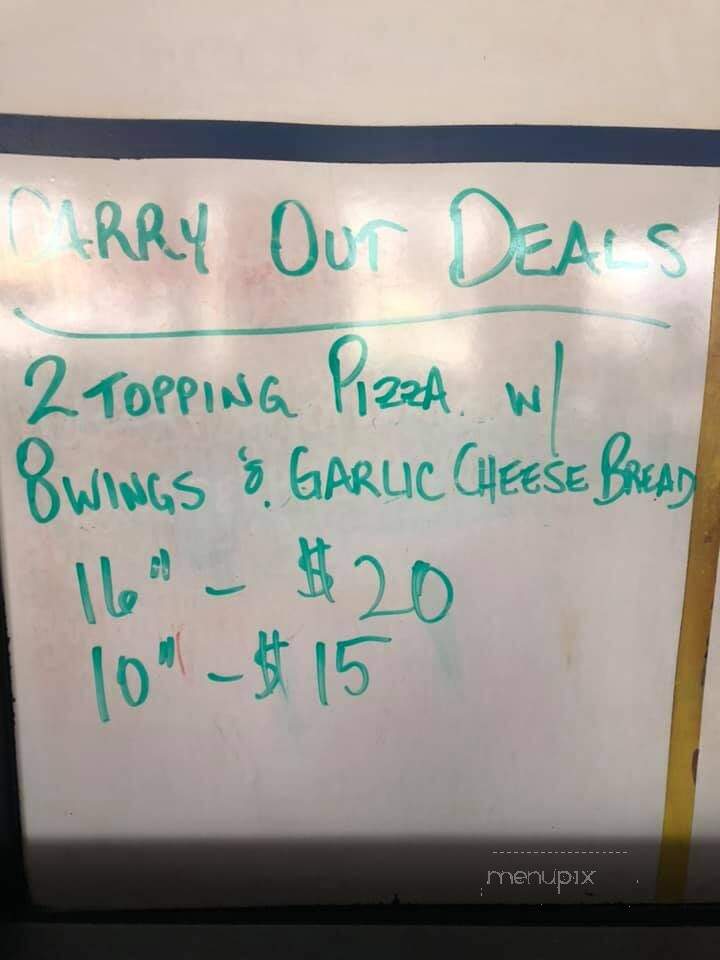 CARRY OUT DEALS
2 TOPPING PIZZA w/
8 WINGS & GARLIC CHEESE BREAD
16" - $20
10" - $15
menupix